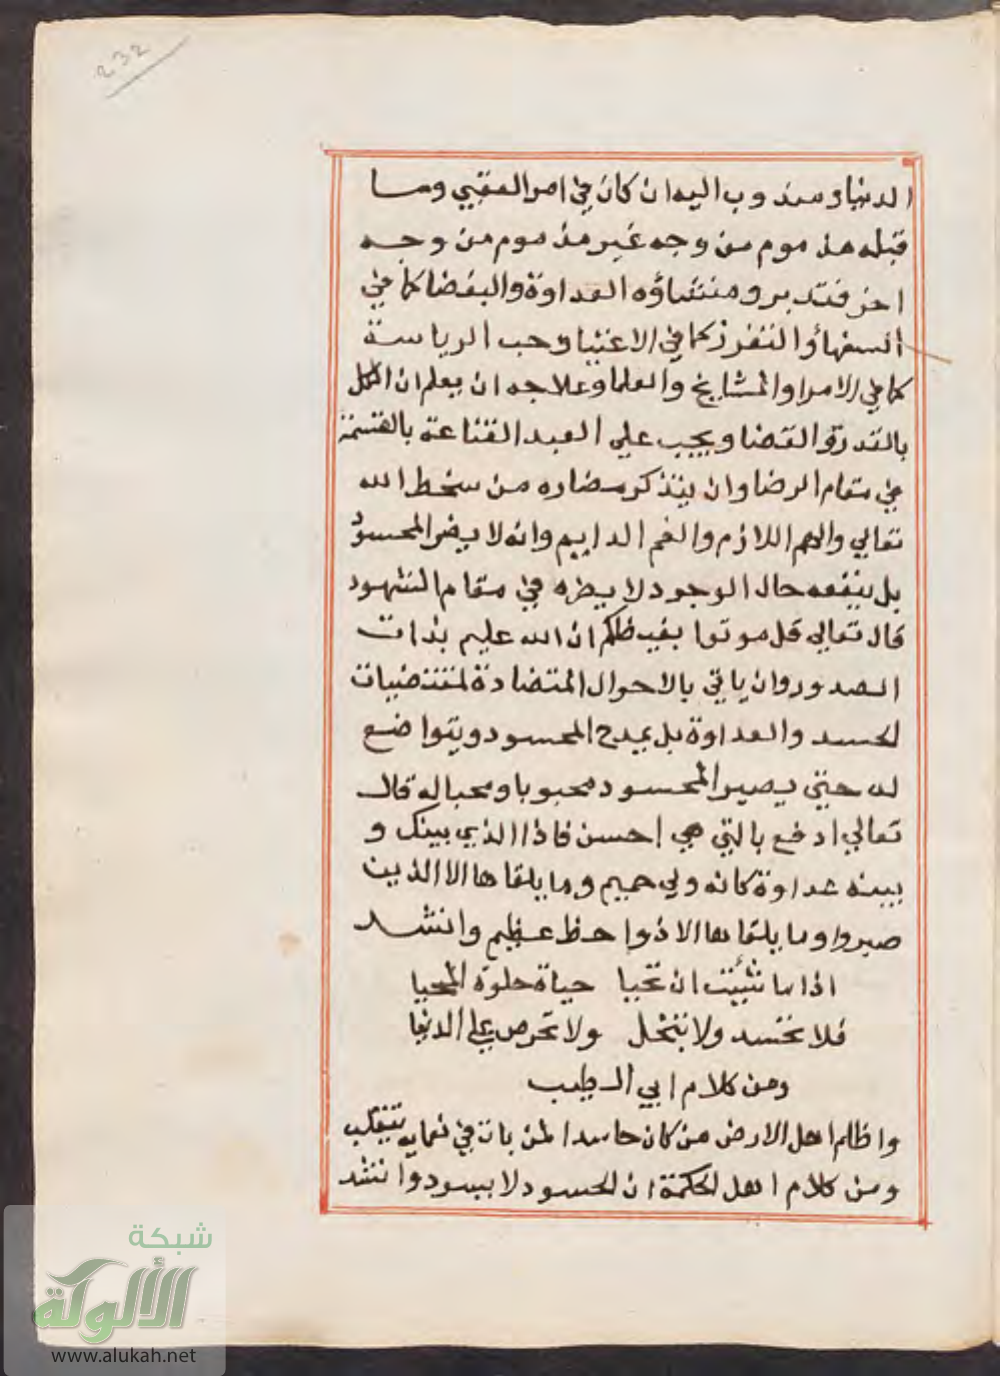 232
الدنيا ومندوب اليه ان كان في امر العقبي وما
قبله مذموم من وجه غير مذموم من وجه
اخر فتدبر ومنشاؤه العداوة والبغضا كما في
السفها والتفرز كما في الاغنيا وحب الرياسة
كما في الامرا والمشايخ والعلما وعلاجه ان يعلم ان الكل
بالقدرة والقضا ويجب علي العبد القناعة بالقسمة
في مقام الرضا وان يتذكر مضاره من سخط الله
تعالي والهم اللازم والغم الدايم وانه لا يضر المحسود
بل ينفعه حال الوجود لا يضره في مقام الشهود
قال تعالي قل موتوا بغيظكم ان الله عليم بذات
الصدور وان ياتي بالاحوال المتضادة لمقتضيات
الحسد والعداوة بل يمدح المحسود ويتواضع
له حتي يصير المحسود محبوبا ومحبا له قال
تعالي ادفع بالتي هي احسن فاذا الذي بينك و
بينه عداوة كانه ولي حميم وما يلقاها الا الذين
صبروا وما يلقاها الا ذوا حظ عظيم وانشد
اذا ما شئت ان تحيا حياة حلوة المحيا
فلا تحسد ولا تبخل ولا تحرص علي الدنيا
ومن كلام ابي الطيب
واظلم اهل الارض من كان حاسدا لمن بات في نعمايه يتقلب
ومن كلام اهل الحكمة ان الحسود لا يسود وانشد
شبكة
الألوكة
www.alukah.net